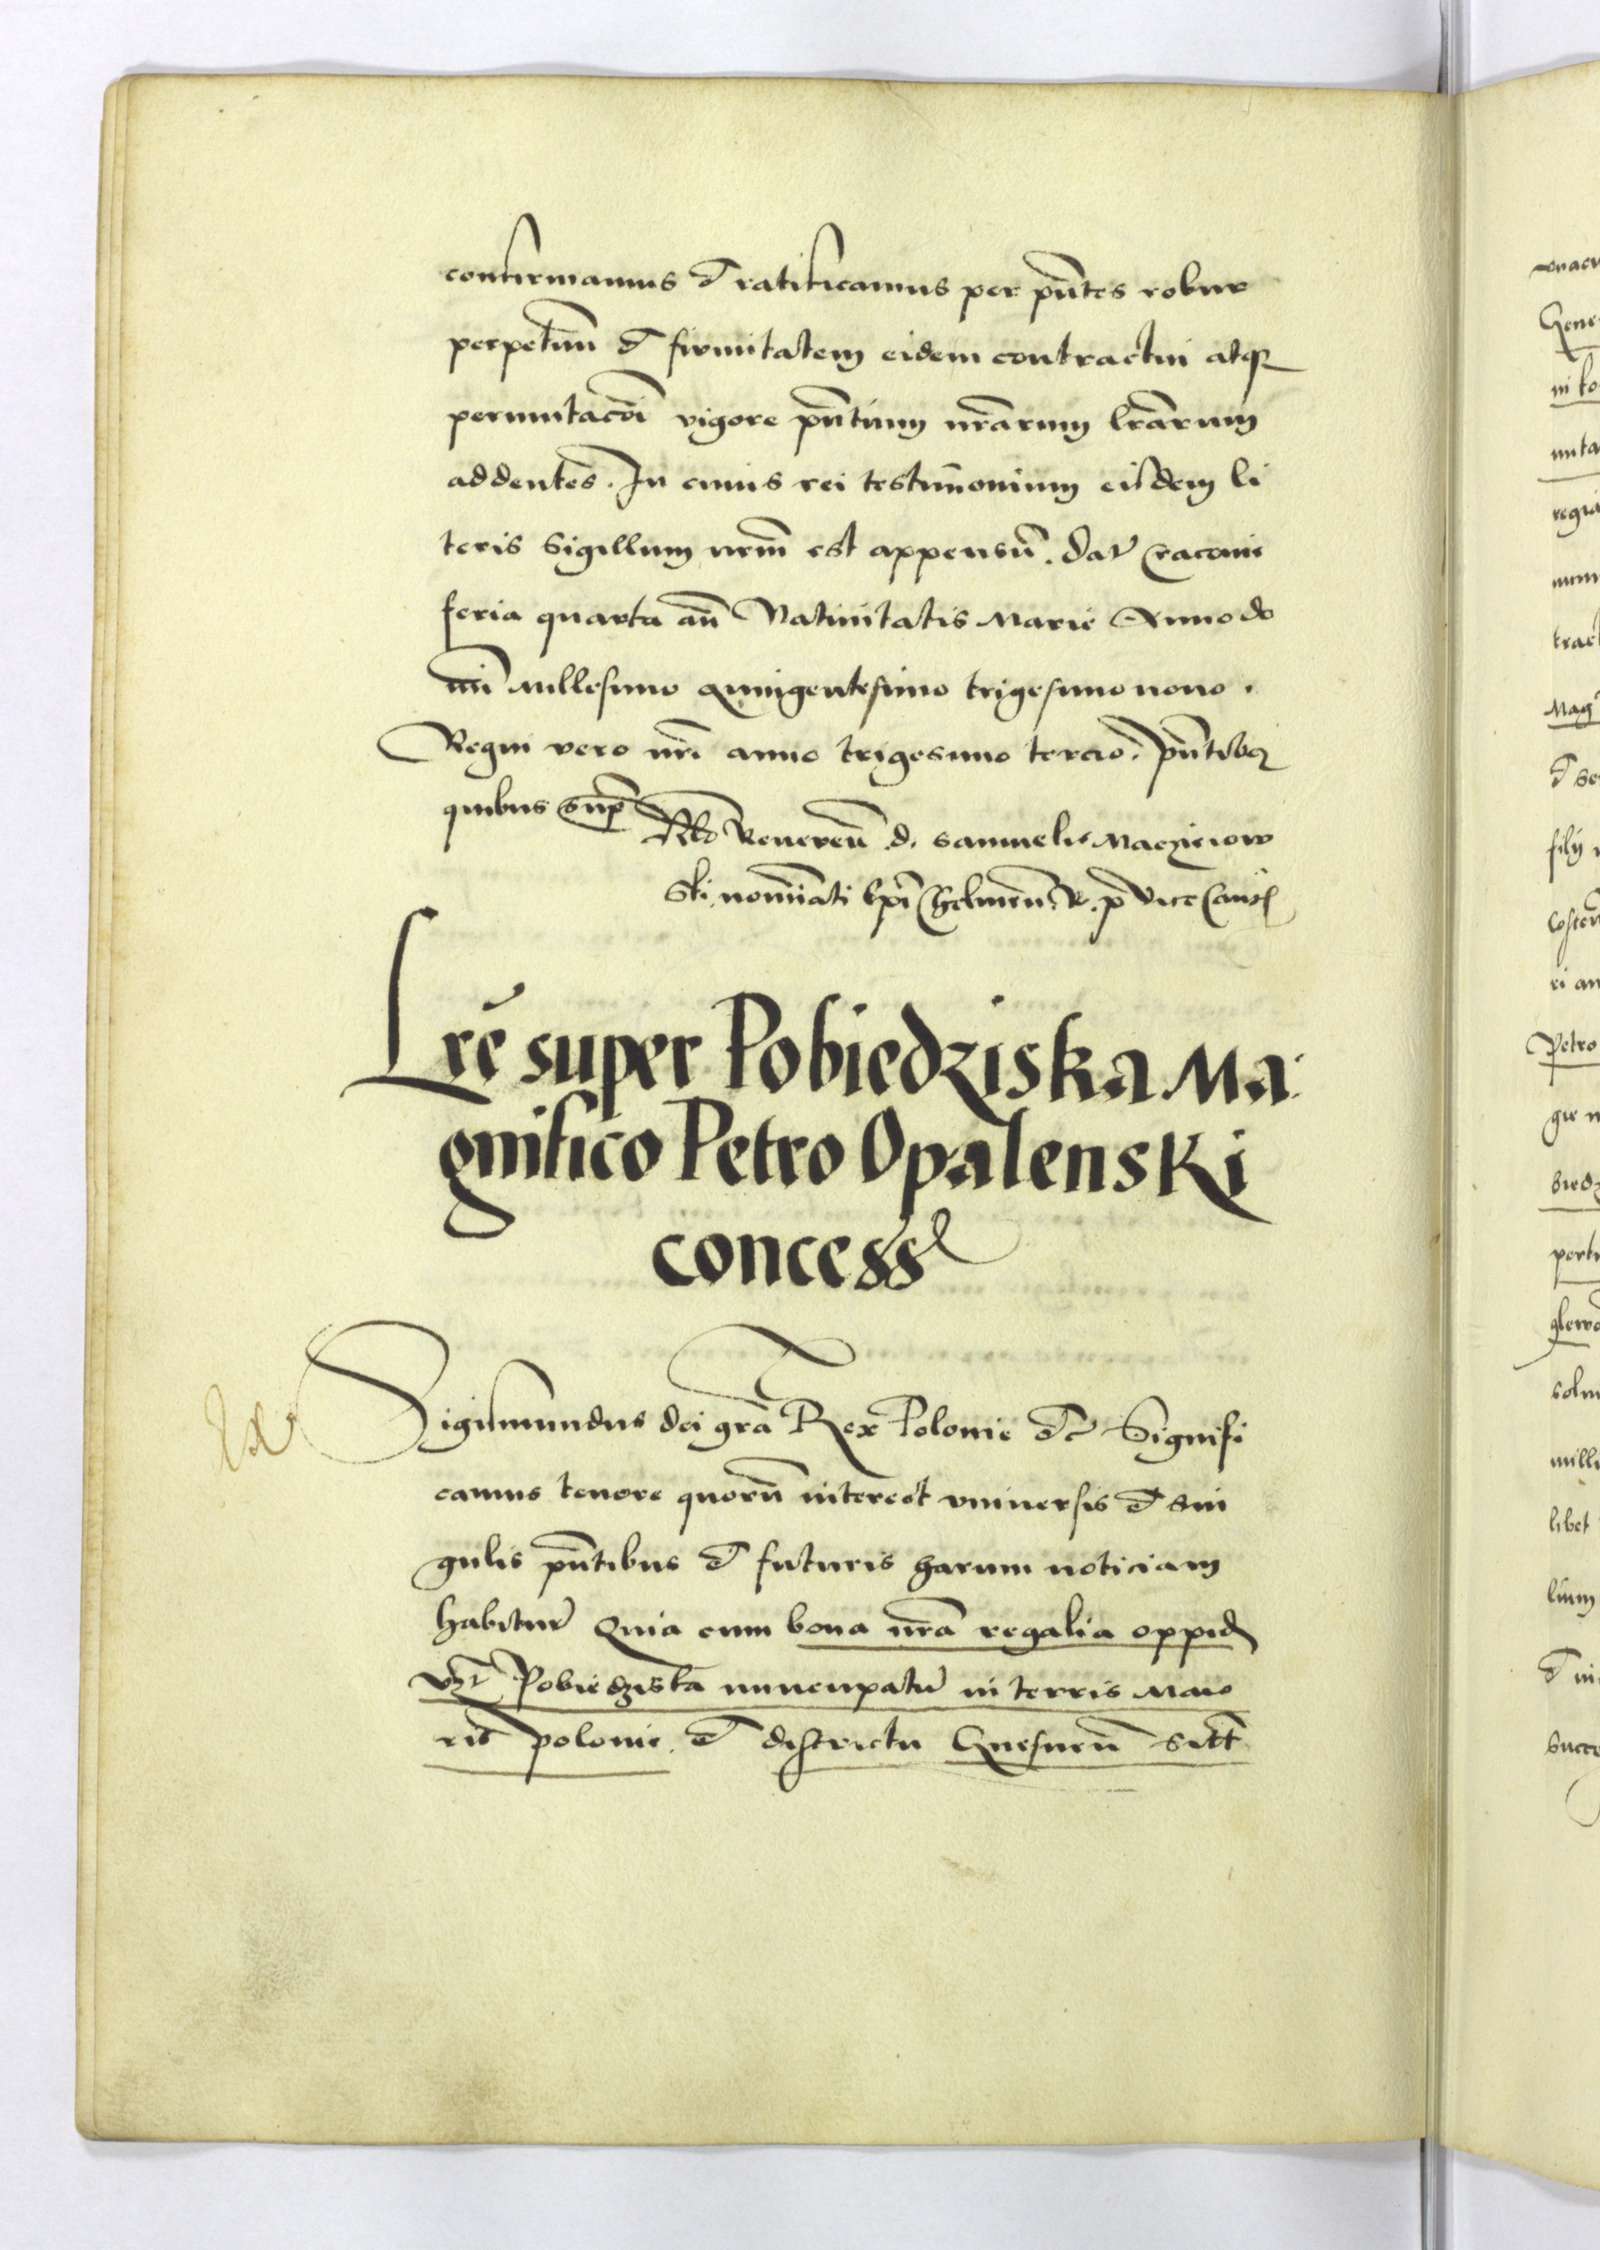 confirmamus et ratificamus per pn̄tes robur
perpetuū et firmitatem eidem contractui atqꝫ
permutacōi vigore pn̄tium nr̄arum lr̄arum
addentes. In cuius rei testimonium eisdem li
teris Sigillum nrm̄ est appensū. Dat̄ Cracovie
feria quarta an̄ Nativitatis Marie Anno do
mī Millesimo Quingentesimo trigesimo nono.
Regni vero nr̄i anno trigesimo tercio. pn̄tibꝫ
quibus sup̄
Rlō Reveren̄ d. Samuelis Macziejow
ski nomīati Ep̄i Chelmen̄. R. p. ViceCancꝭ
Lrē super Pobiedziska Ma
gnifico Petro Opalenski
concessꝭ
Ex
Sigismundus dei grā Rex Polonie etc̄ Signifi
camus tenore quorū interest universis et sin
gulis pn̄tibus et futuris harum noticiam
habitur̄ Quia cum bona nr̄a regalia oppidꝭ
vꝫt Pobiedziska nuncupatū in terris Maio
ris polonie et districtu Gnesnen̄ sitā